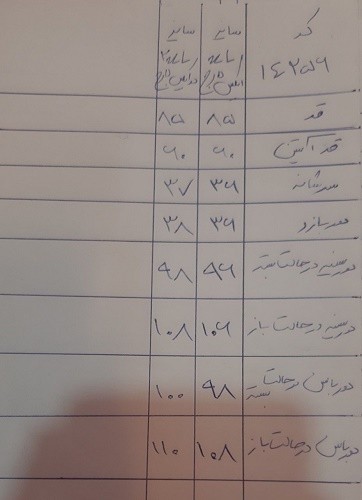 کد
۱۴۲۵۶
سایز
۱ سایز
سایز
۲ سایز
قد ۸۵ ۸۵
قد آستین ۶۰ ۶۰
سرشانه ۳۶ ۳۷
دور بازو ۳۶ ۳۸
دور سینه در حالت بسته ۹۶ ۹۸
دور سینه در حالت باز ۱۰۶ ۱۰۸
دور باسن در حالت بسته ۹۸ ۱۰۰
دور باسن در حالت باز ۱۰۸ ۱۱۰